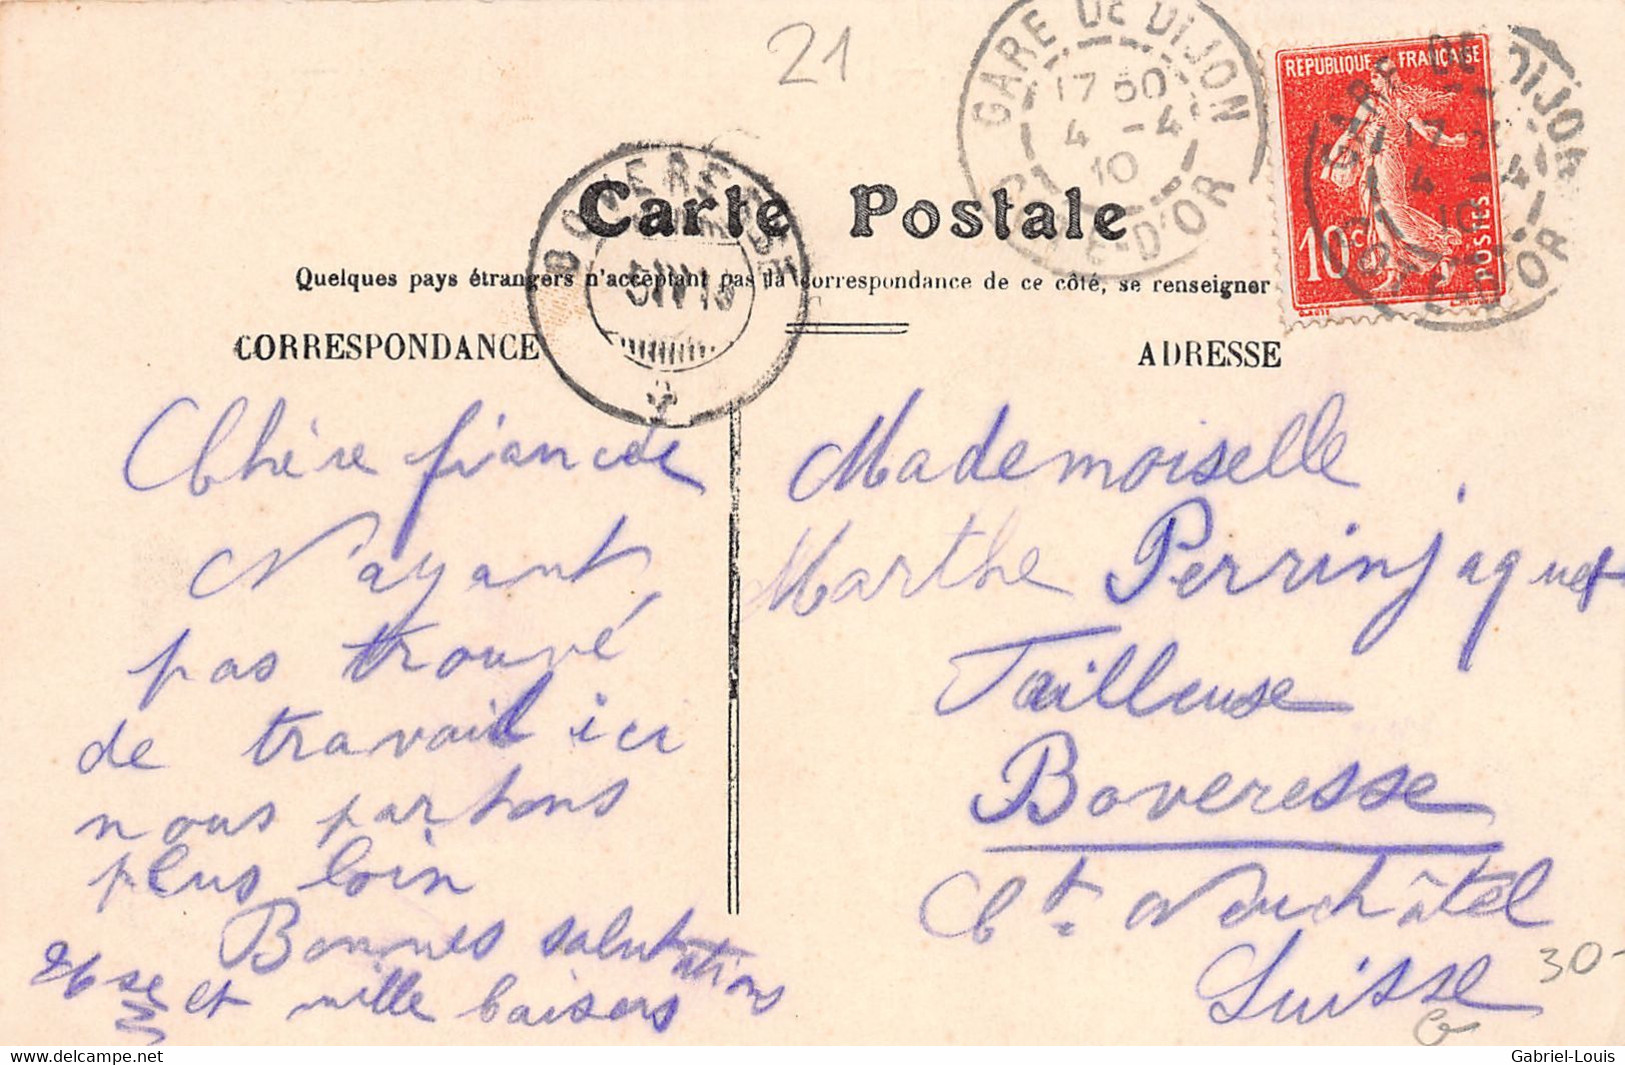 21
GARE DE DIJON
17 50
4 -4
10
CÔTE-D'OR
RÉPUBLIQUE FRANÇAISE
10c
POSTES
GARE DE DIJON
17
4 -4
10
CÔTE-D'OR
BOVERESSE
5 IV 10
Carte Postale
Quelques pays étrangers n'acceptant pas la correspondance de ce côté, se renseigner
CORRESPONDANCE
ADRESSE
Chère fiancée
N'ayant
pas trouvé
de travail ici
nous partons
plus loin
Bonnes salutations
et mille baisers
Mademoiselle
Marthe Perrinjaquet
Tailleuse
Boveresse
Ct. Neuchâtel
Suisse
30-
www.delcampe.net
Gabriel-Louis